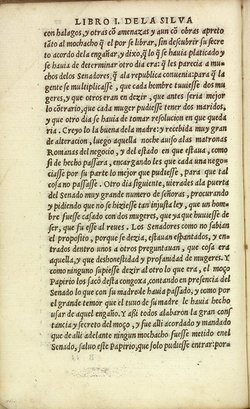 LIBRO I. DE LA SILVA
con halagos, y otras cõ amenazas y aun cõ obras apreto
tãto al mochacho q̃ el por se librar, sin descubrir su secre
to acordo dela engañar, y dixo, q̃ lo q̃ se hauia platicado y
se hauia de determinar otro dia era: q̃ les parecia a mu
chos delos Senadores, q̃ ala republica conuenia: para q̃ la
gente se multiplicasse, que cada hombre tuuiesse dos mu
geres, y que otros eran en dezir, que antes seria mejor
lo cõtrario, que cada muger pudiesse tener dos maridos,
y que otro dia se hauia de tomar resolucion en que queda
ria. Creyo lo la buena de la madre: y recebida muy gran
de alteracion, luego aquella noche auiso alas matronas
Romanas del negocio, y del estado en que estaua, como
si de hecho passara, encargando les que cada una nego
ciasse por su parte lo mejor que pudiesse, para que tal
cosa no passasse. Otro dia siguiente, uierades ala puerta
del Senado muy grande numero de señoras, procurando
y pidiendo que no se hiziesse tan injusta ley, que un hom
bre fuesse casado con dos mugeres, que ya que huuiesse de
ser, que fuesse al reues. Los Senadores como no sabian
el proposito, porque se dezia, estauan espantados, y en-
trados dentro unos a otros preguntauan, que cosa era
aquella, y que deshonestidad y profanidad de mugeres. Y
como ninguno supiesse dezir al otro lo que era, el moço
Papirio los sacò desta congoxa, contando en presencia del
Senado lo que con su madre le hauia passado, y como por
el grande temor que el tuuo de su madre le hauia hecho
usar de aquel engaño. Y assi todos alabaron la gran cons
tancia y secreto del moço, y fue alli acordado y mandado
que de alli adelante ningun mochacho fuesse metido enel
Senado, saluo este Papirio, que solo pudiesse entrar: por-